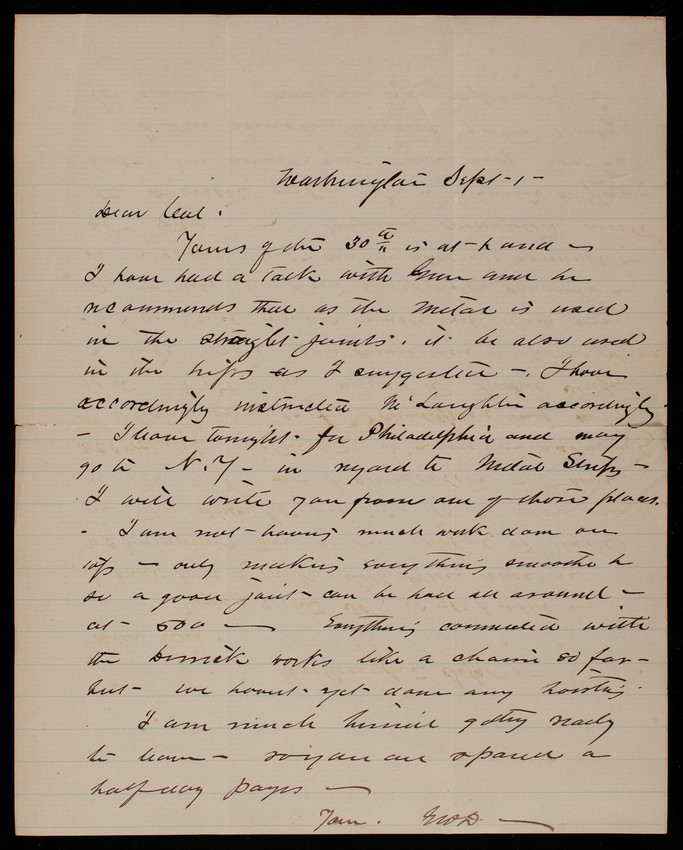 Washington Sept-1-
Dear Col.
Yours of the 30th is at-hand-
I have had a talk with Green and he
recommends that as the metal is used
in the straight-joints, it be also used
in the        as I suggested-. I have
accordingly instructed McLaughlin accordingly-
- I leave tonight- for Philadelphia and may
go to N.Y- in regard to Metal Strips-
I will write you from one of those places.
- I am not-having much work done on
top - only making everything smooth &
so a good joint- can be had all around-
at- 500 - Everything connected with
the Derrick works like a charm so far-
but- we havent-yet-done any hoisting.
I am much hurried getting ready
to leave- so you are spared a
half doz pages-
Yours.